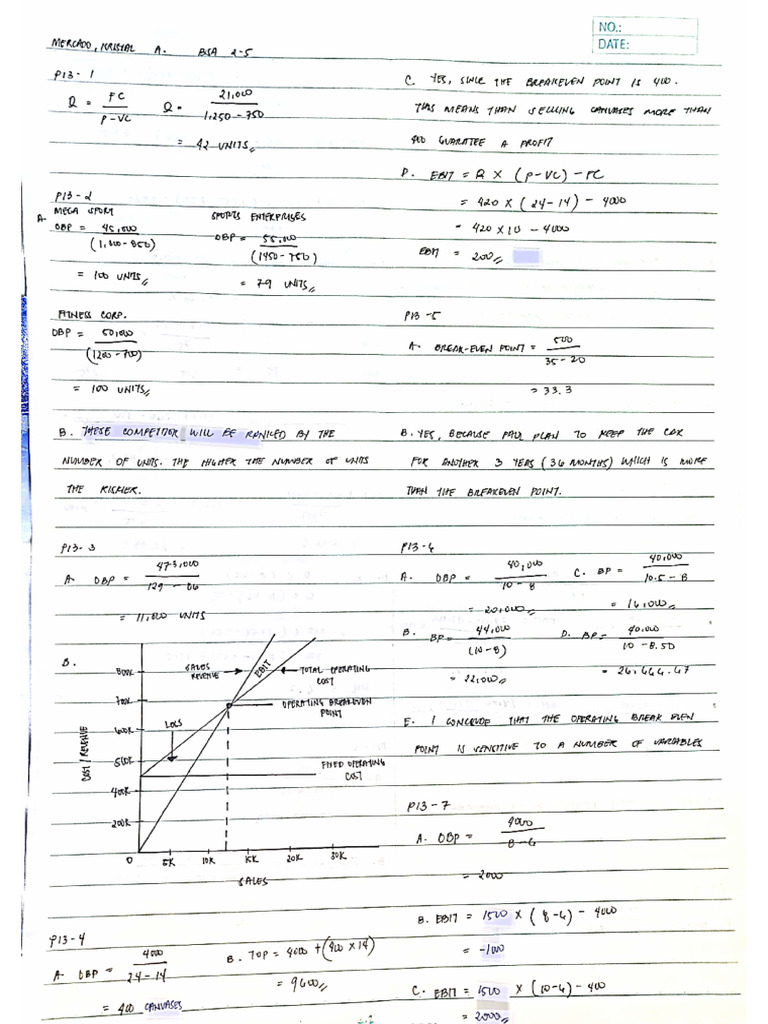 NO.:
DATE:
MERCADO, KRISTAL A. BSA 2-5
P13-1
Q = FC / P-VC Q = 21,000 / 1,250-750
= 42 UNITS
P13-2
A. MEGA SPORT
OBP = 45,000 / (1,300-850)
= 100 UNITS
SPORTS ENTERPRISES
OBP = 55,000 / (1450-750)
= 79 UNITS
FITNESS CORP.
OBP = 50,000 / (1200-700)
= 100 UNITS
B. THESE COMPETITOR WILL BE RANKED BY THE
NUMBER OF UNITS. THE HIGHER THE NUMBER OF UNITS
THE RISKIER.
P13-3
A. OBP = 473,000 / 129-86
= 11,000 UNITS
B.
COST / REVENUE
800K
700K
600K
500K
400K
200K
0 5K 10K 15K 20K 30K
SALES
SALES REVENUE
EBIT
TOTAL OPERATING COST
OPERATING BREAKEVEN POINT
LOSS
FIXED OPERATING COST
P13-4
A. OBP = 4000 / 24-14
= 400 CANVASES
B. TOP = 4000 + (400 x 14)
= 9600
C. YES, SINCE THE BREAKEVEN POINT IS 400.
THIS MEANS THAN SELLING CANVASES MORE THAN
400 GUARATEE A PROFIT
D. EBIT = Q X (P-VC) - FC
= 420 X (24-14) - 4000
= 420 X 10 - 4000
EBIT = 200
P13-5
A. BREAK-EVEN POINT = 500 / 35-20
= 33.3
B. YES, BECAUSE PAUL PLAN TO KEEP THE CAR
FOR ANOTHER 3 YEAS (36 MONTHS) WHICH IS MORE
THEN THE BREAKEVEN POINT.
P13-6
A. OBP = 40,000 / 10-8
= 20,000
C. BP = 40,000 / 10.5-8
= 16,000
B. BP = 44,000 / (10-8)
= 22,000
D. BP = 40,000 / 10-8.50
= 26,666.67
E. I CONCLUDE THAT THE OPERATING BREAK EVEN
POINT IS SENSITIVE TO A NUMBER OF VARIABLES
P13-7
A. OBP = 4000 / 8-6
= 2000
B. EBIT = 1500 X (8-6) - 4000
= -1000
C. EBIT = 1500 X (10-6) - 400
= 2000